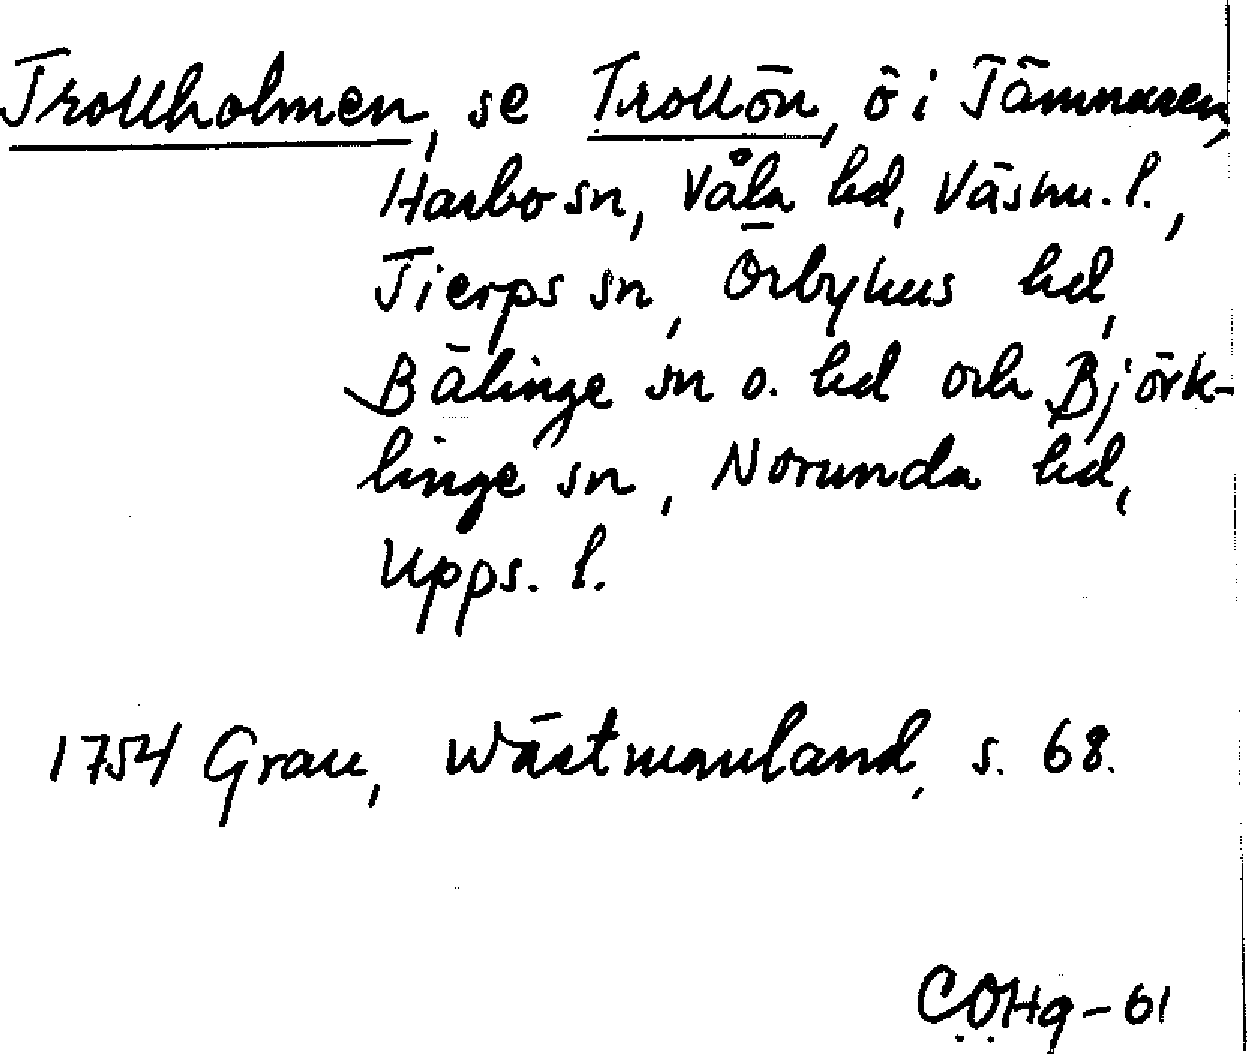 Trollholmen, se Trollön, ö i Tämnaren,
Harbo sn, Våla hd, Västm. l.,
Tierps sn, Örbyhus hd,
Bälinge sn o. hd och Björk-
linge sn, Norunda hd,
Upps. l.
1754 Grau, Wästmanland, s. 68.
COHg-61